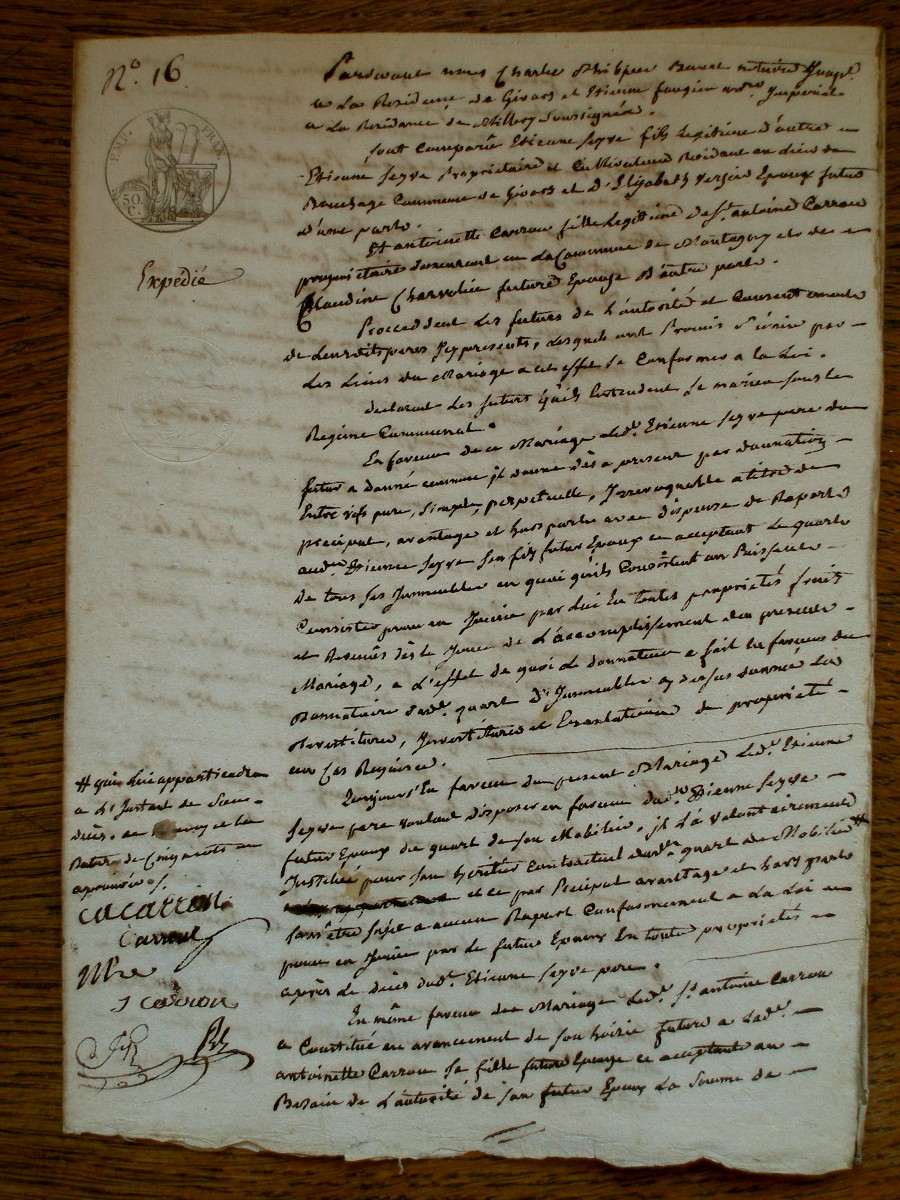 N.º 16
EMP. FRAN.
50 C.
Expédié
Pardevant nous Charle Philipee notaire Imp.l
a La Residence de Givors et Etienne notre Imperial
a La Residance de Millery soussignés.
sont Comparis Etienne Seyve fils Legitime d'autre
Etienne Seyve Propriétaire et Cultivateur Residant au Lieu de
Bouchage Commune de Givors et d'Elizabeth Versier Epoux futur
d'une part.
Et antoinette Carron fille Legitime de S.r antoine Carron
propriétaire demeurant en La Commune de Montagny et de
Claudine Charvolin future Epouse D'autre part.
Proceddent Les futurs de L'autorité et Consentements
de Leursdits peres Icy presents, Lesquels ont Promis S'unir par
Les Liens du Mariage a cet effet se Conformer a la Loi.
declarant Les futurs qu'ils Entendent se marier sous le
Regime Communal.
En faveur de ce Mariage Led.t Etienne Seyve pere du
futur a donné comme il donne dès a present par donnation
Entre vifs pure, simple, perpetuelle, Irrevoquable a titre de
preciput, avantage et hors parts avec dispense de Raport
aud.t Etienne Seyve son fils futur Epoux ce acceptant Le quart
de tous ses Immeubles en quoi qu'ils Consistent ou Puissent
Consister pour en Jouir par Lui En toutes propriétés fruits
et Revenus dès le Jour de L'accomplissement du present
Mariage, a L'effet de quoi Le donnateur a fait En faveur du
Donnataire dud.t quart d'Immeubles cy dessus donné La
devestiture, Investiture et Translation de propriété
en Cas Requise.
Toujours En faveur du present Mariage Led.t Etienne
Seyve pere voulant disposer en faveur dud.t Etienne Seyve
futur Epoux du quart de son Mobilier, il L'a volontairement
Institué pour son heritier Contractuel dud.t quart de Mobilier #
et ce par Préciput avantage et hors parts
sans être sujet a aucun Raport Conformement a La Loi
pour en Jouir par Le futur Epoux En toute propriétés
après Le décès dud.t Etienne Seyve pere.
En même faveur du Mariage Led.t S.r antoine Carron
a Constitué en avancement de son hoirie future a Lad.te
antoinette Carron sa fille future Epouse ce acceptant au
Besoin de L'autorité de son futur Epoux La Somme de
# qui Lui appartiendra
a L'Instant de Son
décès, en et La
Nature de
apouvée
ca carron
Carron
J carron